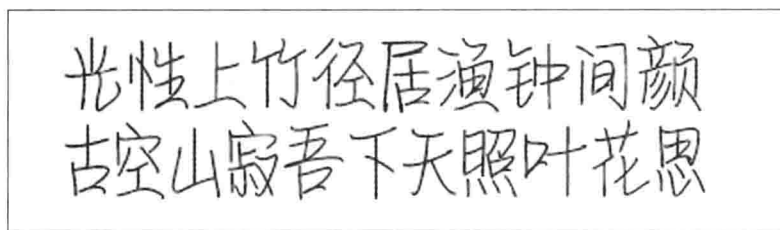 光性上竹径居渔钟间颜
古空山寂吾下天照叶花思